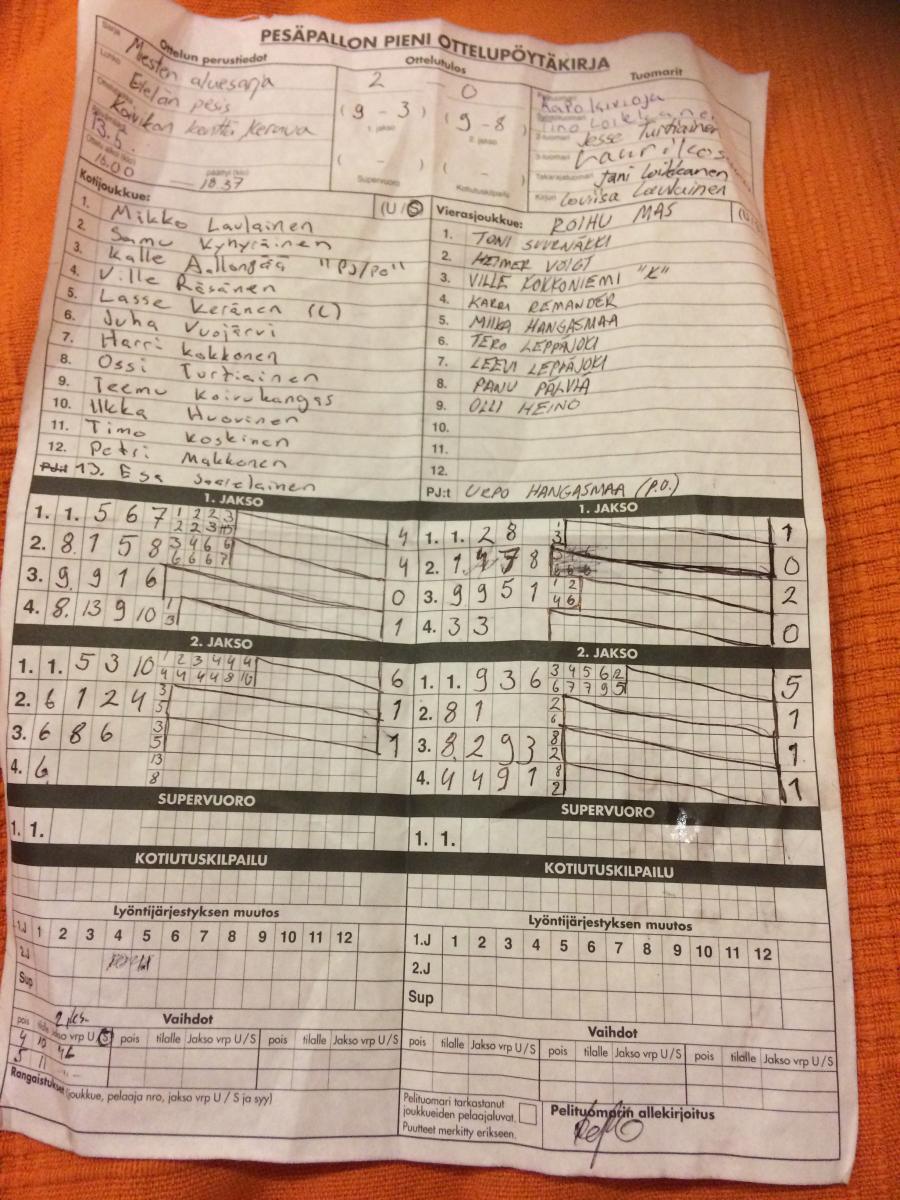 PESÄPALLON PIENI OTTELUPÖYTÄKIRJA
Sarja Ottelun perustiedot
Miesten aluesarja
Lohko
Etelän pesis
Koivikon kenttä Kerava
13.5.
Ottelu alkoi (klo) päättyi (klo)
16.00 — 18.37
Ottelutulos
2 0
(9 - 3) (9 - 8)
1. jakso 2. jakso
( - ) ( - )
Supervuoro Kotiutuskilpailu
Tuomarit
Jesse Turtiainen
Jani Loikkanen
Loviisa Laulainen
Kotijoukkue: (U/S)
1. Mikko Laulainen
2. Samu Kyhyräinen
3. Kalle Aallonpää "PJ/PO"
4. Ville Räsänen
5. Lasse Keränen (L)
6. Juha Vuojärvi
7. Harri Kokkonen
8. Ossi Turtiainen
9. Teemu Koivukangas
10. Ilkka Huovinen
11. Timo Koskinen
12. Petri Makkonen
PJ:t 13. Esa
Vierasjoukkue: ROIHU MAS (U
1. TONI SUURNÄKKI
2. HEIMER VOIGT
3. VILLE KOKKONIEMI "K"
4. KARRI REMANDER
5. MIIKA HANGASMAA
6. TERO LEPPÄJOKI
7. LEEVI LEPPÄJOKI
8. PANU PÄLVIÄ
9. OLLI HEINO
10.
11.
12.
PJ:t URPO HANGASMAA (P.O.)
1. JAKSO
1. 1. 5 6 7 4
2. 8 1 5 8 4
3. 9 9 1 6 0
4. 8 13 9 10 1 3 1
1. JAKSO
1. 1. 2 8 1 3 1
2. 1 4 7 8 0
3. 9 9 5 1 1 2 4 6 2
4. 3 3 0
2. JAKSO
1. 1. 5 3 10 1 2 3 4 4 4 6
4 4 4 8 10
2. 6 1 2 4 3 5 1
3. 6 8 6 3 5 1
4. 6 13 8
2. JAKSO
1. 1. 9 3 6 3 4 5 6 12 5
6 7 7 9 5
2. 8 1 2 6 1
3. 8 2 9 3 8 2 1
4. 4 4 9 1 8 2 1
SUPERVUORO
1. 1.
SUPERVUORO
1. 1.
KOTIUTUSKILPAILU
KOTIUTUSKILPAILU
Lyöntijärjestyksen muutos
1.J 1 2 3 4 5 6 7 8 9 10 11 12
2.J
Sup
Lyöntijärjestyksen muutos
1.J 1 2 3 4 5 6 7 8 9 10 11 12
2.J
Sup
Vaihdot
pois tilalle Jakso vrp U/S pois tilalle Jakso vrp U/S pois tilalle Jakso vrp U/S
4 10
5 11
Vaihdot
pois tilalle Jakso vrp U/S pois tilalle Jakso vrp U/S pois tilalle Jakso vrp U/S
Rangaistukset (joukkue, pelaaja nro, jakso vrp U / S ja syy)
Pelituomari tarkastanut
joukkueiden pelaajaluvat.
Puutteet merkitty erikseen.
Pelituomarin allekirjoitus